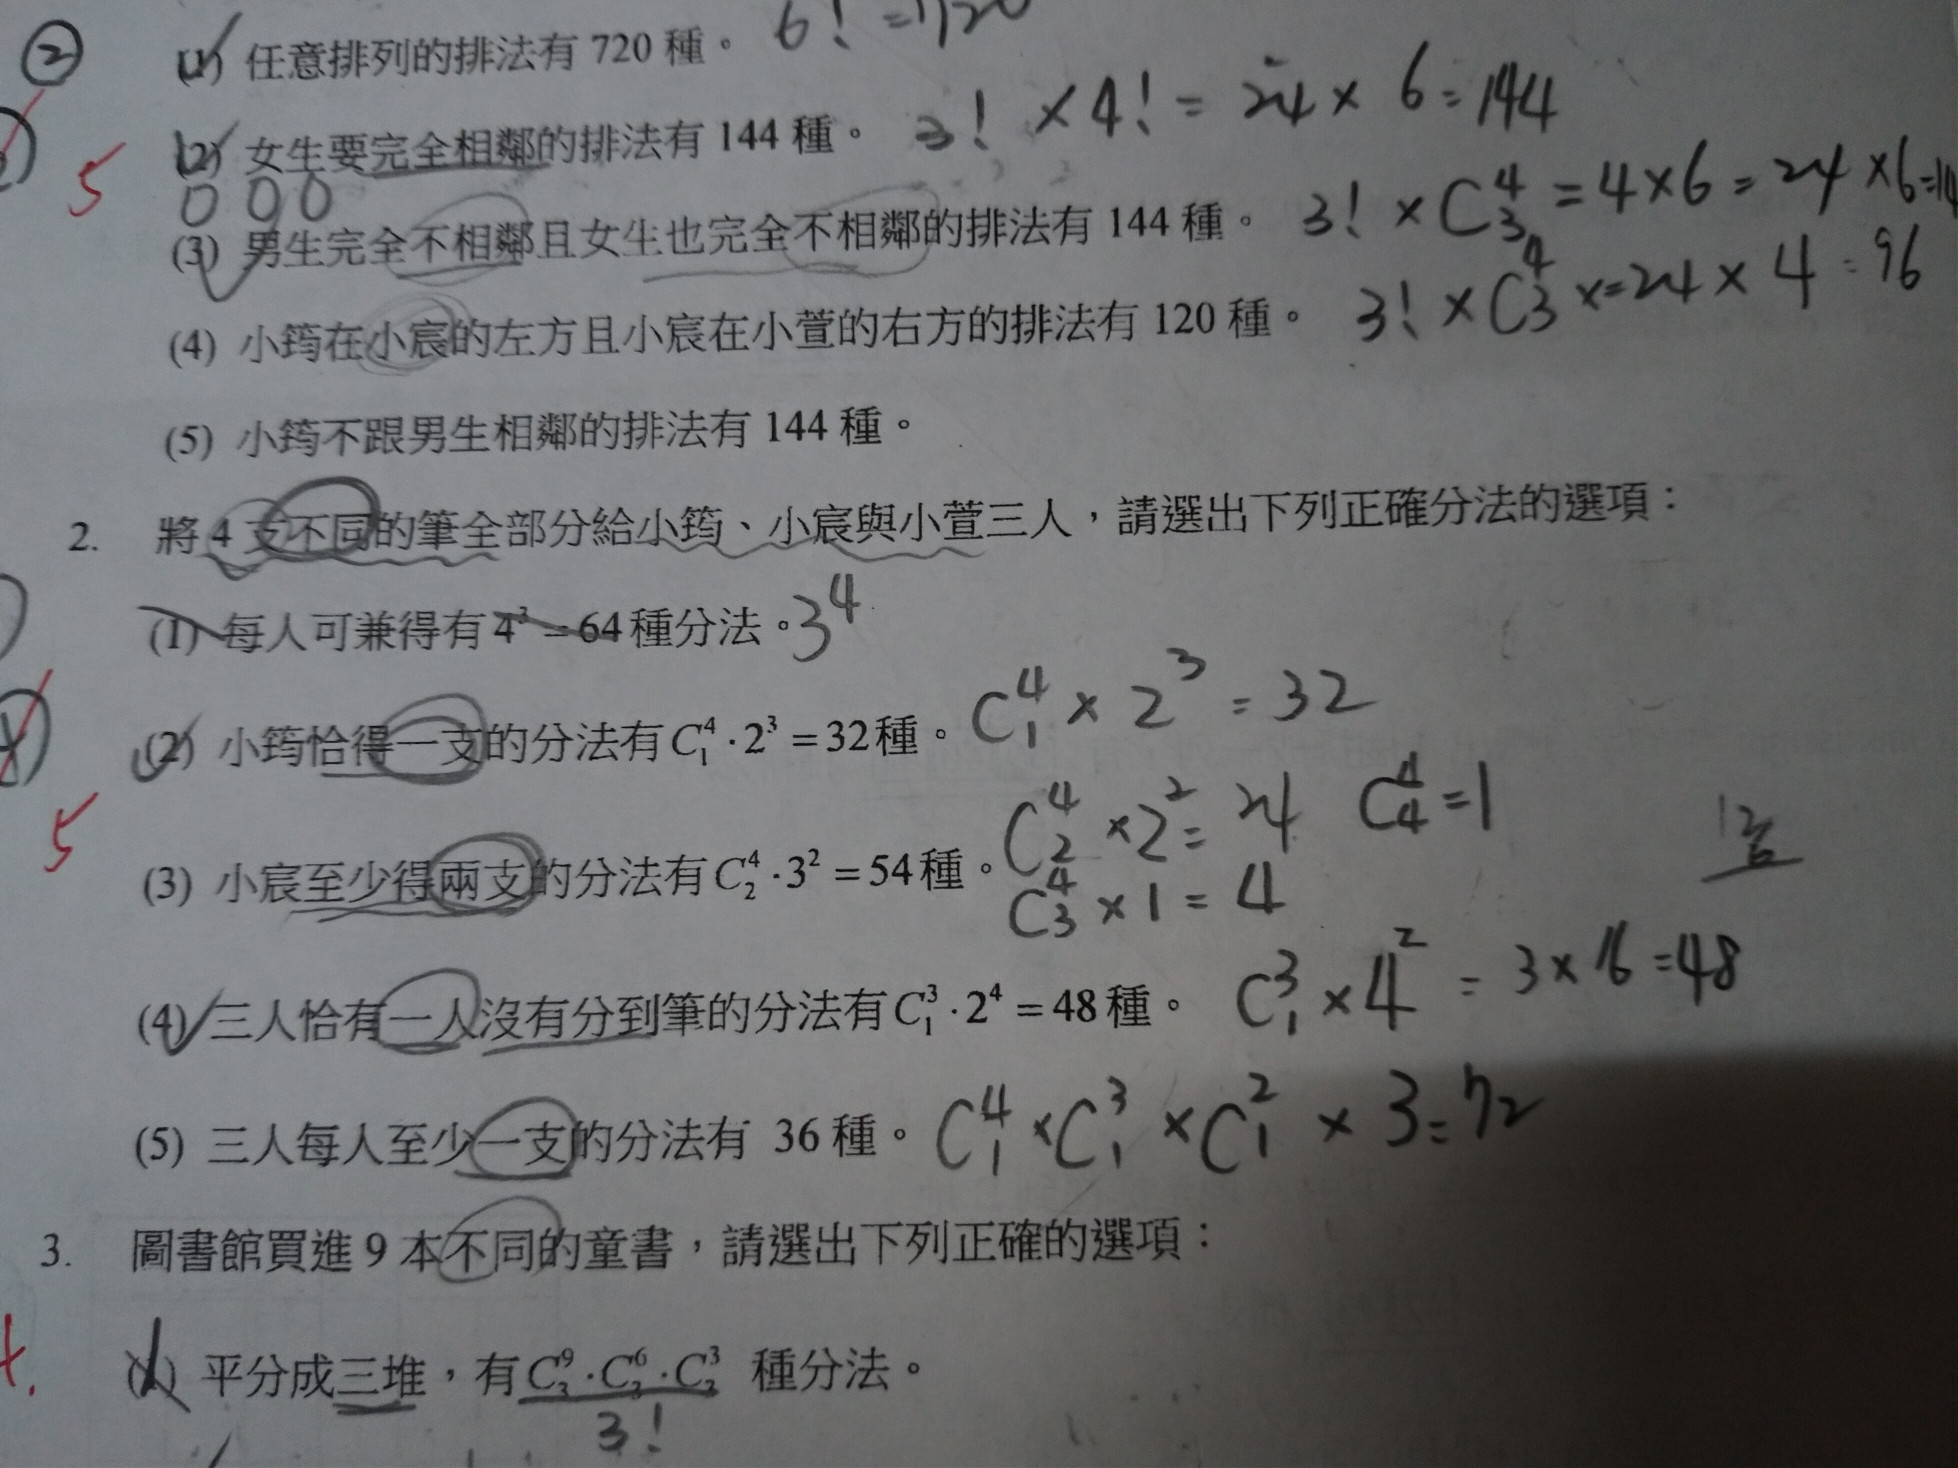 ② (1) 任意排列的排法有 720 種。 6! =720
(2) 女生要完全相鄰的排法有 144 種。 3! ×4! = 24 × 6 = 144
5
000
(3) 男生完全不相鄰且女生也完全不相鄰的排法有 144 種。 3! × C⁴₃ = 4×6 = 24 ×6=14
(4) 小筠在小宸的左方且小宸在小萱的右方的排法有 120 種。 3! × C⁴₃ ×=24 × 4 = 96
(5) 小筠不跟男生相鄰的排法有 144 種。
2. 將 4 支不同的筆全部分給小筠、小宸與小萱三人,請選出下列正確分法的選項:
(1) 每人可兼得有 4³ = 64 種分法。 3⁴
(2) 小筠恰得一支的分法有 C⁴₁ · 2³ = 32 種。 C⁴₁ × 2³ = 32
5
C⁴₂ ×2² = 24 C⁴₄ =1
(3) 小宸至少得兩支的分法有 C⁴₂ · 3² = 54 種。
C⁴₃ × 1 = 4
(4) 三人恰有一人沒有分到筆的分法有 C³₁ · 2⁴ = 48 種。 C³₁ × 4² = 3 × 16 = 48
(5) 三人每人至少一支的分法有 36 種。 C⁴₁ × C³₁ × C²₁ × 3 = 72
3. 圖書館買進 9 本不同的童書,請選出下列正確的選項:
(1) 平分成三堆,有 C⁹₃ · C⁶₃ · C³₃ 種分法。
3!